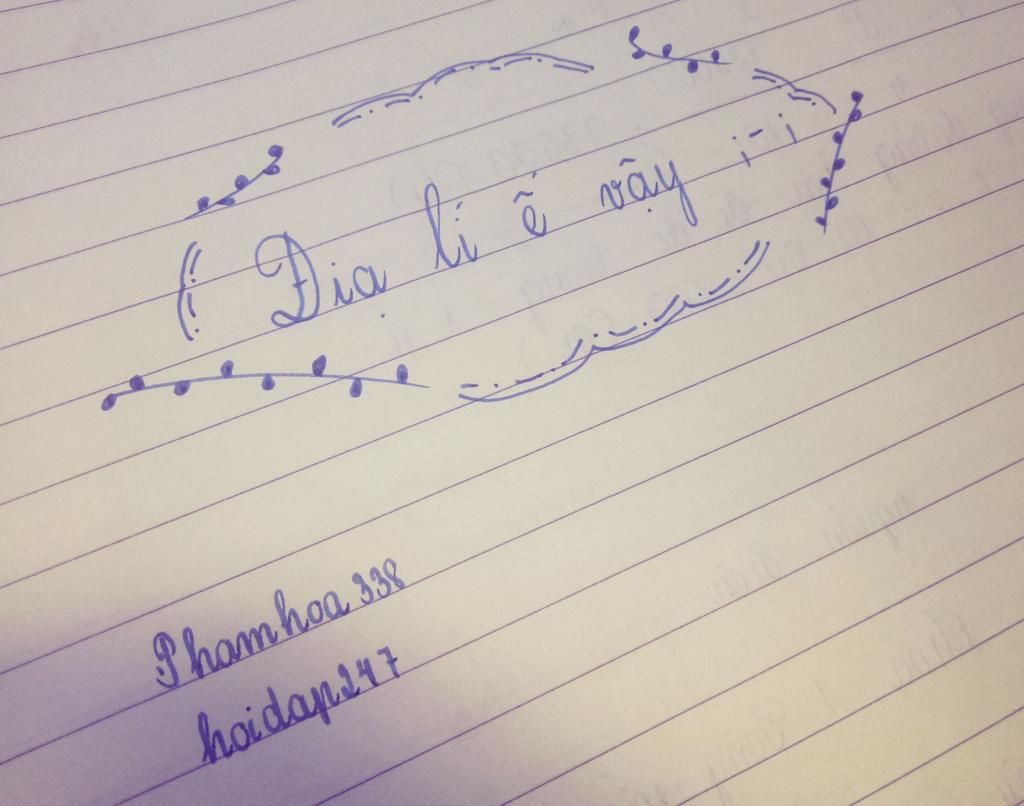 Địa lí ế vậy i-i
Phamhoa338
hoidap247